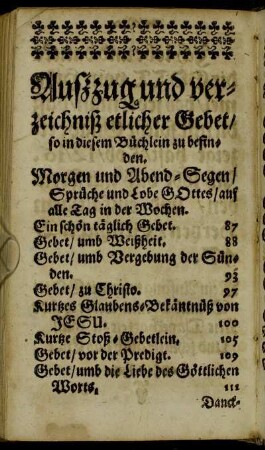 Auszzug und ver-
zeichniß etlicher Gebet/
so in diesem Büchlein zu befin-
den.
Morgen und Abend-Segen/
Sprüche und Lobe GOttes/auf
alle Tag in der Wochen.
Ein schön täglich Gebet. 87
Gebet/ umb Weißheit. 88
Gebet/ umb Vergebung der Sün-
den. 93
Gebet/ zu Christo. 97
Kurtzes Glaubens-Bekäntnüß von
JESU. 100
Kurtze Stoß-Gebetlein. 105
Gebet/ vor der Predigt. 109
Gebet/umb die Liebe des Göttlichen
Worts. 111
Danck-